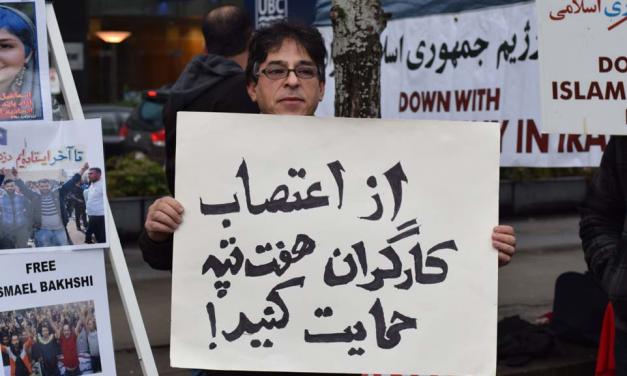 از اعتصاب
کارگران هفت تپه
حمایت کنید!
UBC
رژیم جمهوری
DOWN WITH
IN IRA
اسلامی
DO
ISLAM
تا آخر ایستاده‌ایم
FREE
SMAEL BAKHSHI